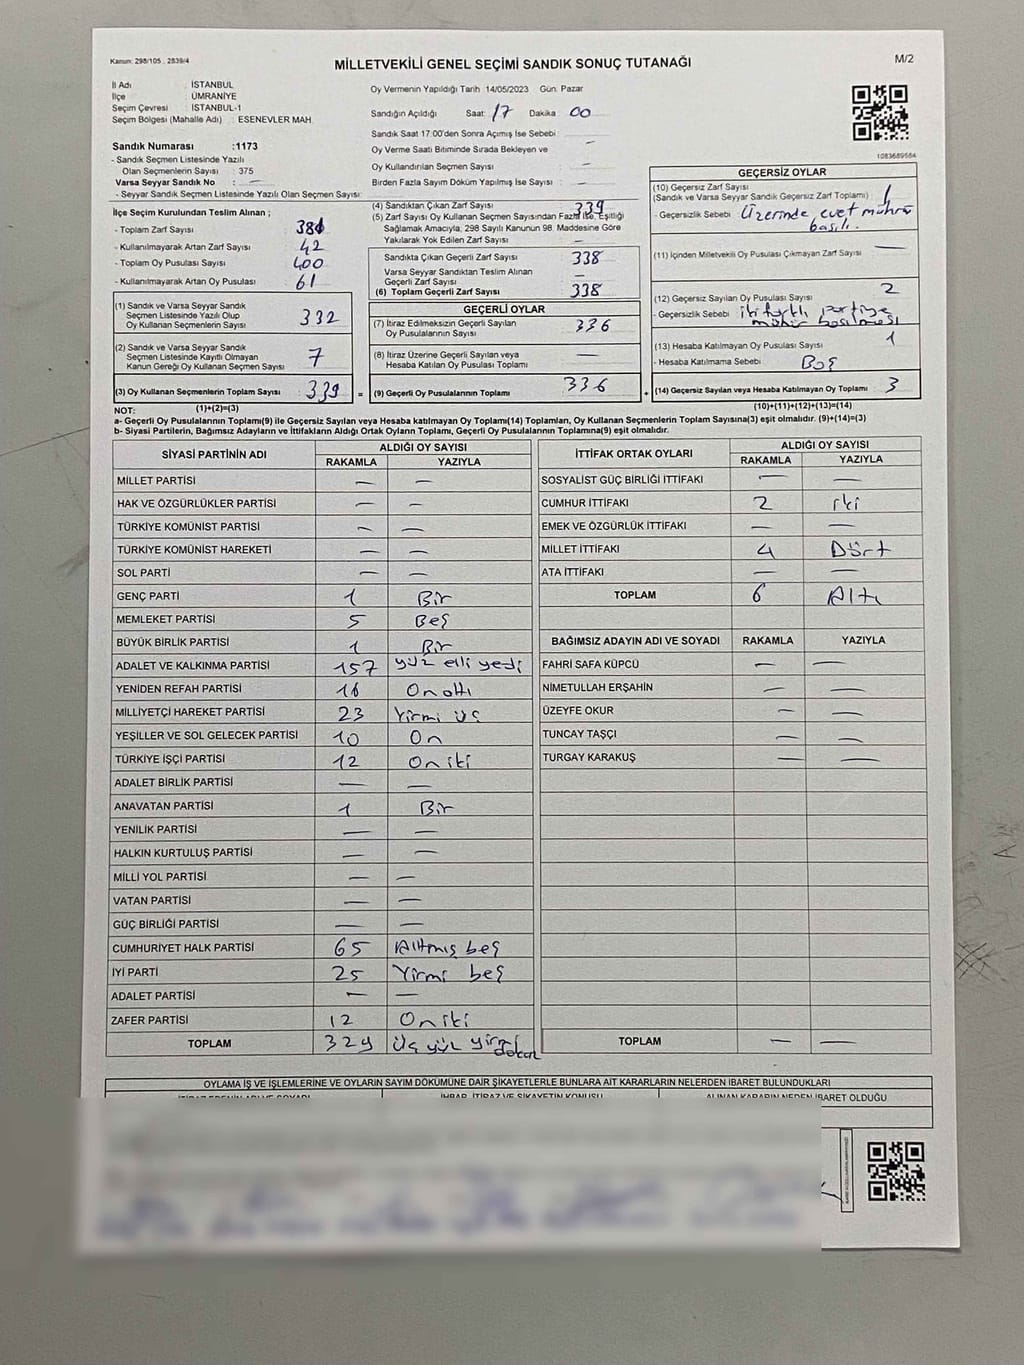 Kanun: 298/105 , 2839/4
MİLLETVEKİLİ GENEL SEÇİMİ SANDIK SONUÇ TUTANAĞI
M/2
İl Adı : İSTANBUL
İlçe : ÜMRANİYE
Seçim Çevresi : İSTANBUL-1
Seçim Bölgesi (Mahalle Adı) : ESENEVLER MAH.
Sandık Numarası :1173
- Sandık Seçmen Listesinde Yazılı
Olan Seçmenlerin Sayısı : 375
Varsa Seyyar Sandık No : —
- Seyyar Sandık Seçmen Listesinde Yazılı Olan Seçmen Sayısı:
Oy Vermenin Yapıldığı Tarih 14/05/2023 Gün: Pazar
Sandığın Açıldığı Saat: 17 Dakika 00
Sandık Saat 17:00'den Sonra Açılmış İse Sebebi : —
Oy Verme Saati Bitiminde Sırada Bekleyen ve
Oy Kullandırılan Seçmen Sayısı : —
Birden Fazla Sayım Döküm Yapılmış İse Sayısı : —
1083689584
İlçe Seçim Kurulundan Teslim Alınan ;
- Toplam Zarf Sayısı : 381
- Kullanılmayarak Artan Zarf Sayısı : 42
- Toplam Oy Pusulası Sayısı : 400
- Kullanılmayarak Artan Oy Pusulası : 61
(1) Sandık ve Varsa Seyyar Sandık
Seçmen Listesinde Yazılı Olup
Oy Kullanan Seçmenlerin Sayısı : 332
(2) Sandık ve Varsa Seyyar Sandık
Seçmen Listesinde Kayıtlı Olmayan
Kanun Gereği Oy Kullanan Seçmen Sayısı : 7
(3) Oy Kullanan Seçmenlerin Toplam Sayısı : 339 =
(4) Sandıktan Çıkan Zarf Sayısı : 339
(5) Zarf Sayısı Oy Kullanan Seçmen Sayısından Fazla ise, Eşitliği
Sağlamak Amacıyla, 298 Sayılı Kanunun 98. Maddesine Göre
Yakılarak Yok Edilen Zarf Sayısı : —
Sandıkta Çıkan Geçerli Zarf Sayısı : 338
Varsa Seyyar Sandıktan Teslim Alınan
Geçerli Zarf Sayısı : —
(6) Toplam Geçerli Zarf Sayısı : 338
GEÇERLİ OYLAR
(7) İtiraz Edilmeksizin Geçerli Sayılan
Oy Pusulalarının Sayısı : 336
(8) İtiraz Üzerine Geçerli Sayılan veya
Hesaba Katılan Oy Pusulası Toplamı : —
(9) Geçerli Oy Pusulalarının Toplamı : 336 +
GEÇERSİZ OYLAR
(10) Geçersiz Zarf Sayısı
(Sandık ve Varsa Seyyar Sandık Geçersiz Zarf Toplamı) : 1
- Geçersizlik Sebebi : Üzerinde evet mührü
basılı.
(11) İçinden Milletvekili Oy Pusulası Çıkmayan Zarf Sayısı : —
(12) Geçersiz Sayılan Oy Pusulası Sayısı : 2
- Geçersizlik Sebebi : iki farklı partiye
mühür basılması
(13) Hesaba Katılmayan Oy Pusulası Sayısı : 1
- Hesaba Katılmama Sebebi : Boş
(14) Geçersiz Sayılan veya Hesaba Katılmayan Oy Toplamı : 3
NOT: (1)+(2)=(3)
(10)+(11)+(12)+(13)=(14)
a- Geçerli Oy Pusulalarının Toplamı(9) ile Geçersiz Sayılan veya Hesaba katılmayan Oy Toplamı(14) Toplamları, Oy Kullanan Seçmenlerin Toplam Sayısına(3) eşit olmalıdır. (9)+(14)=(3)
b- Siyasi Partilerin, Bağımsız Adayların ve İttifakların Aldığı Ortak Oyların Toplamı, Geçerli Oy Pusulalarının Toplamına(9) eşit olmalıdır.
SİYASİ PARTİNİN ADI ALDIĞI OY SAYISI
RAKAMLA YAZIYLA
MİLLET PARTİSİ — —
HAK VE ÖZGÜRLÜKLER PARTİSİ — —
TÜRKİYE KOMÜNİST PARTİSİ — —
TÜRKİYE KOMÜNİST HAREKETİ — —
SOL PARTİ — —
GENÇ PARTİ 1 Bir
MEMLEKET PARTİSİ 5 Beş
BÜYÜK BİRLİK PARTİSİ 1 Bir
ADALET VE KALKINMA PARTİSİ 157 yüz elli yedi
YENİDEN REFAH PARTİSİ 16 On altı
MİLLİYETÇİ HAREKET PARTİSİ 23 Yirmi üç
YEŞİLLER VE SOL GELECEK PARTİSİ 10 On
TÜRKİYE İŞÇİ PARTİSİ 12 On iki
ADALET BİRLİK PARTİSİ — —
ANAVATAN PARTİSİ 1 Bir
YENİLİK PARTİSİ — —
HALKIN KURTULUŞ PARTİSİ — —
MİLLİ YOL PARTİSİ — —
VATAN PARTİSİ — —
GÜÇ BİRLİĞİ PARTİSİ — —
CUMHURİYET HALK PARTİSİ 65 Altmış beş
İYİ PARTİ 25 Yirmi beş
ADALET PARTİSİ — —
ZAFER PARTİSİ 12 On iki
TOPLAM 329 üç yüz yirmi
dokuz
İTTİFAK ORTAK OYLARI ALDIĞI OY SAYISI
RAKAMLA YAZIYLA
SOSYALİST GÜÇ BİRLİĞİ İTTİFAKI — —
CUMHUR İTTİFAKI 2 iki
EMEK VE ÖZGÜRLÜK İTTİFAKI — —
MİLLET İTTİFAKI 4 Dört
ATA İTTİFAKI — —
TOPLAM 6 Altı
BAĞIMSIZ ADAYIN ADI VE SOYADI RAKAMLA YAZIYLA
FAHRİ SAFA KÜPCÜ — —
NİMETULLAH ERŞAHİN — —
ÜZEYFE OKUR — —
TUNCAY TAŞÇI — —
TURGAY KARAKUŞ — —
TOPLAM — —
OYLAMA İŞ VE İŞLEMLERİNE VE OYLARIN SAYIM DÖKÜMÜNE DAİR ŞİKAYETLERLE BUNLARA AİT KARARLARIN NELERDEN İBARET BULUNDUKLARI
İHBAR, İTİRAZ VE ŞİKAYETİN KONUSU ALINAN KARARIN NEDEN İBARET OLDUĞU